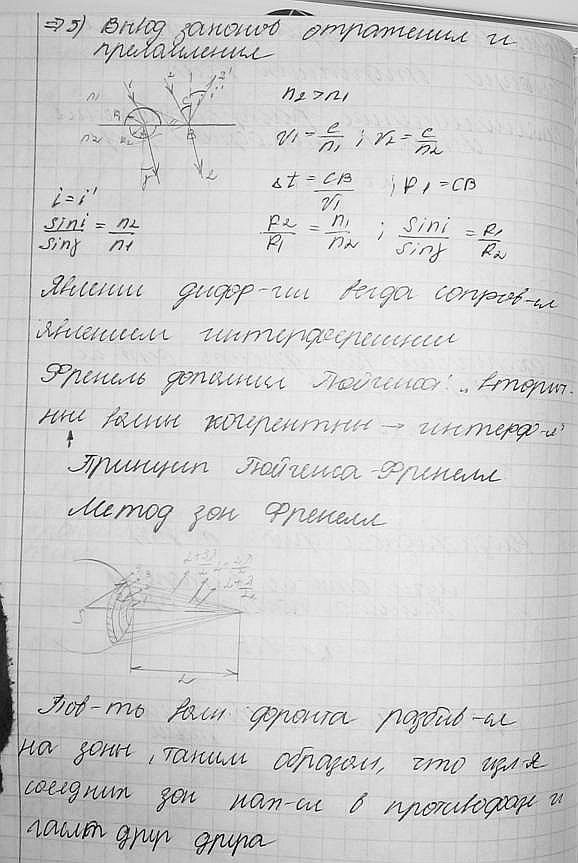 ⇒ 5) Вывод законов отражения и
преломления
n1
n2
n2 > n1
v1 = c/n1 ; v2 = c/n2
Δt = CB/v1 ; R1 = CB
i = i'
sin i/sin γ = n2/n1
R2/R1 = n1/n2 ; sin i/sin γ = R1/R2
Явлении дифр-ции всегда сопров-ся
явлением интерференции
Френель дополнил Гюйгенса: „вторич-
ные волны когерентны → интерф-я"
Принцип Гюйгенса-Френеля
Метод зон Френеля
L
Пов-ть волн. фронта разбив-ся
на зоны, таким образом, что изл-я
соседних зон нах-ся в противофазе и
гасят друг друга